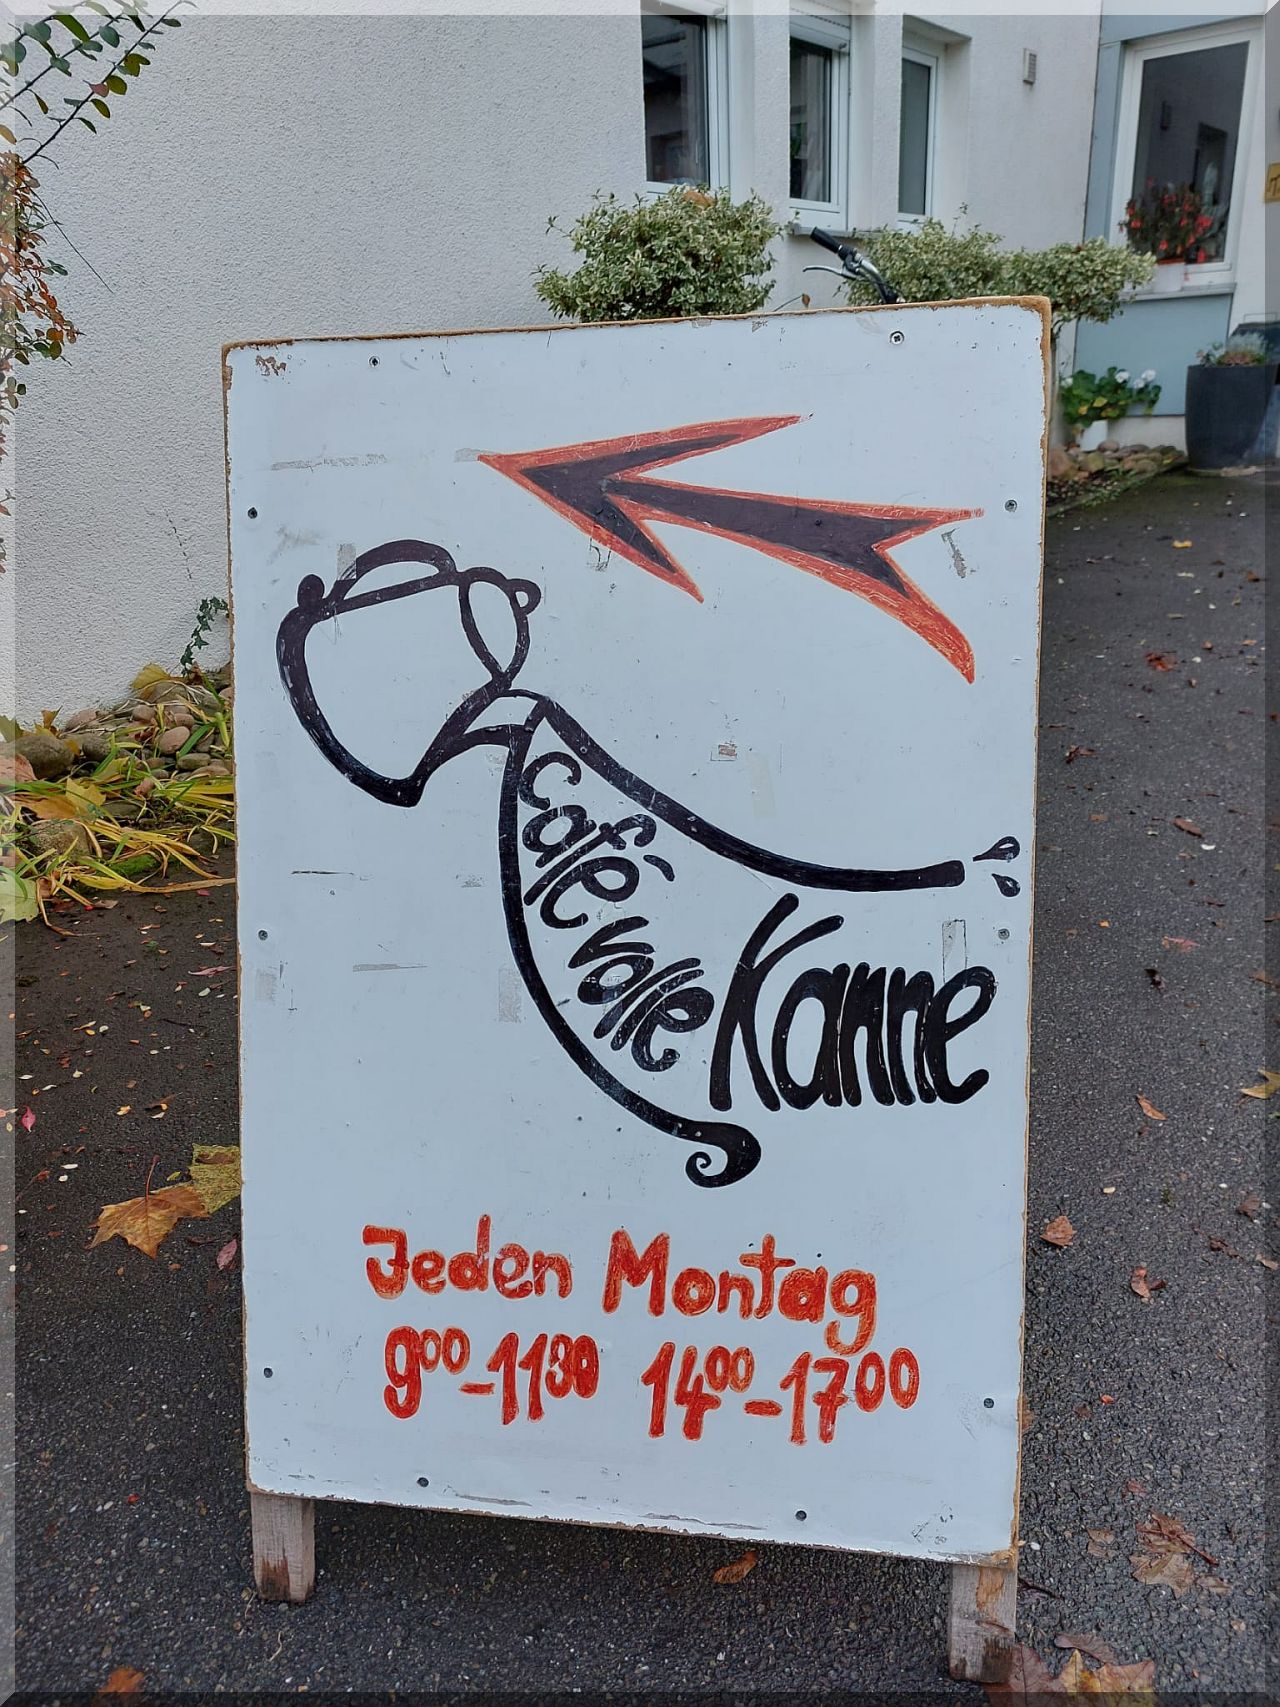 café
volle
Kanne
Jeden Montag
9⁰⁰-11³⁰ 14⁰⁰-17⁰⁰